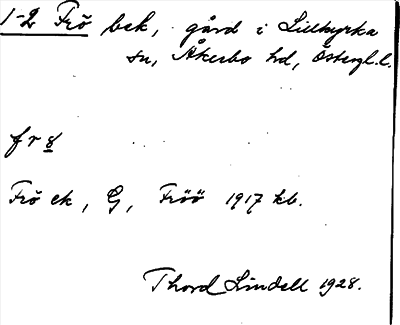 1-2 Frö bek, gård i Lillkyrka
sn, Åkerbo hd, Östergl. l.
frö
Frö ek, G, Fröö 1917 kb.
Thord Lindell 1928.